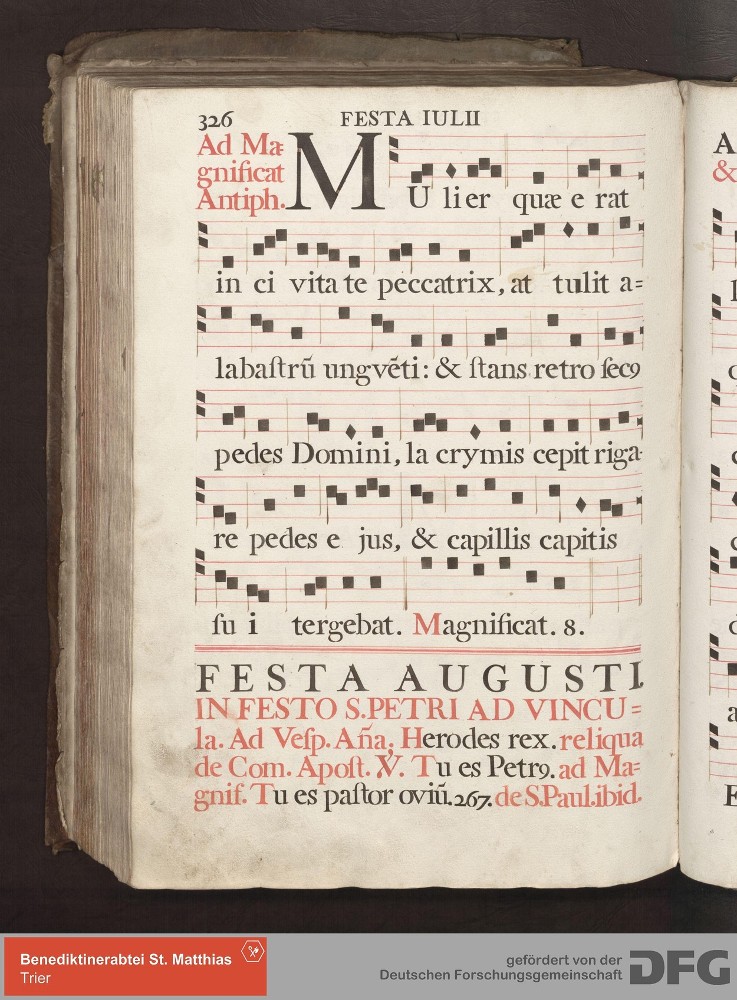 326 FESTA IULII
Ad Ma=
gnificat
Antiph.
MU lier quæ e rat
in ci vita te peccatrix, at tulit a=
labaſtrũ ungvẽti: & ſtans retro ſecꝰ
pedes Domini, la crymis cepit riga-
re pedes e jus, & capillis capitis
ſu i tergebat. Magnificat. 8.
FESTA AUGUSTI.
IN FESTO S. PETRI AD VINCU=
la. Ad Veſp. Aña; Herodes rex. reliqua
de Com. Apoſt. ℣. Tu es Petrꝰ. ad Ma=
gnif. Tu es paſtor oviũ. 267. de S. Paul. ibid.
A
&
Benediktinerabtei St. Matthias
Trier
gefördert von der
Deutschen Forschungsgemeinschaft
DFG